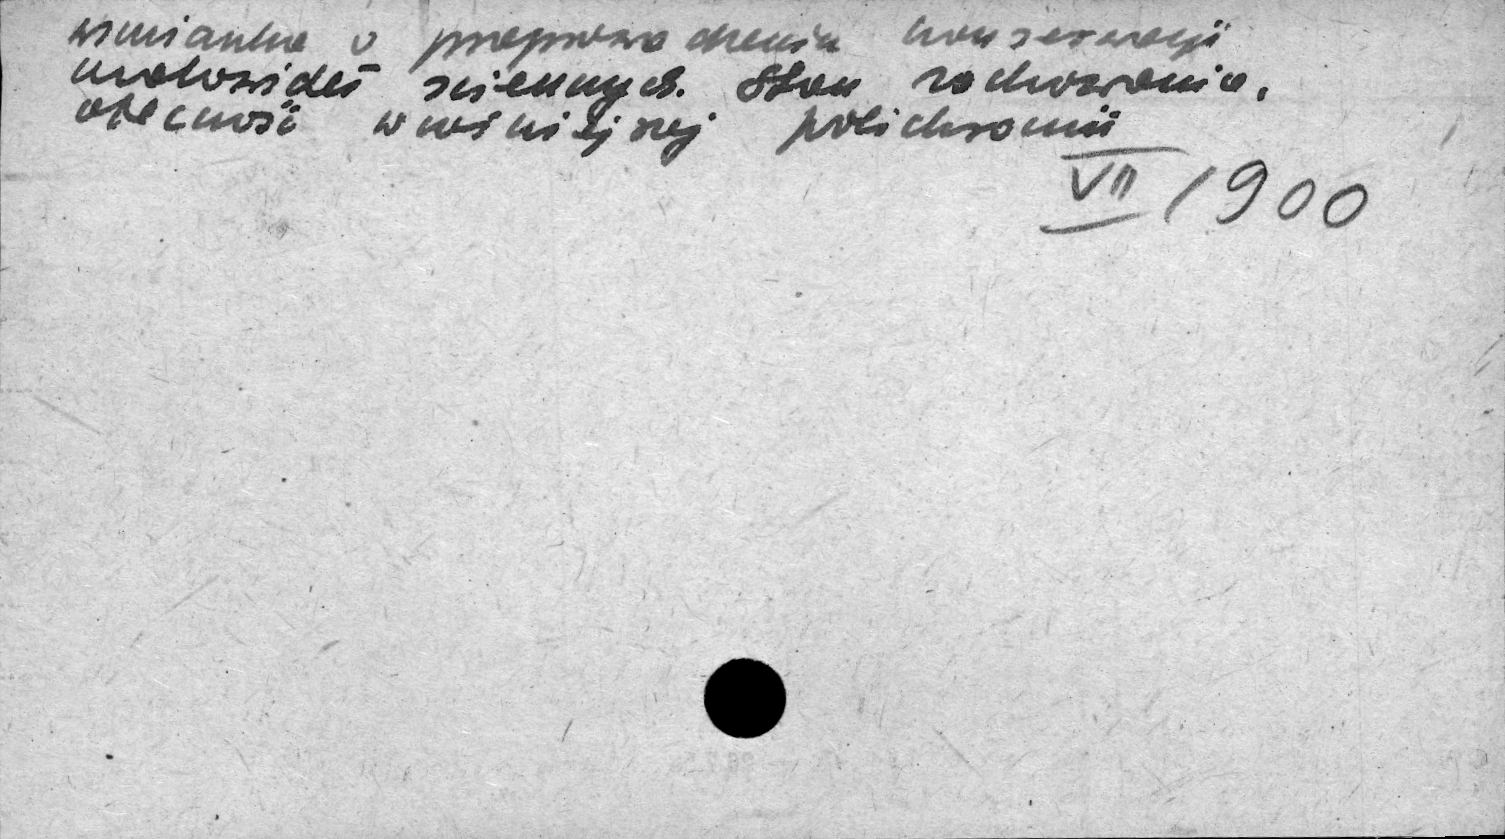 wzmianka o przeprowadzeniu konserwacji
malowideł ściennych. Stan zachowania,
obecność wcześniejszej polichromii
VII 1900